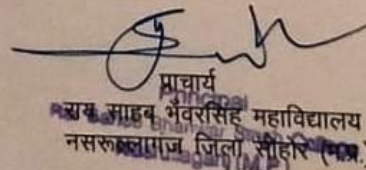 प्राचार्य
Principal
राय साहब भँवरसिंह महाविद्यालय
नसरूल्लागंज जिला सीहोर (म.प्र.)